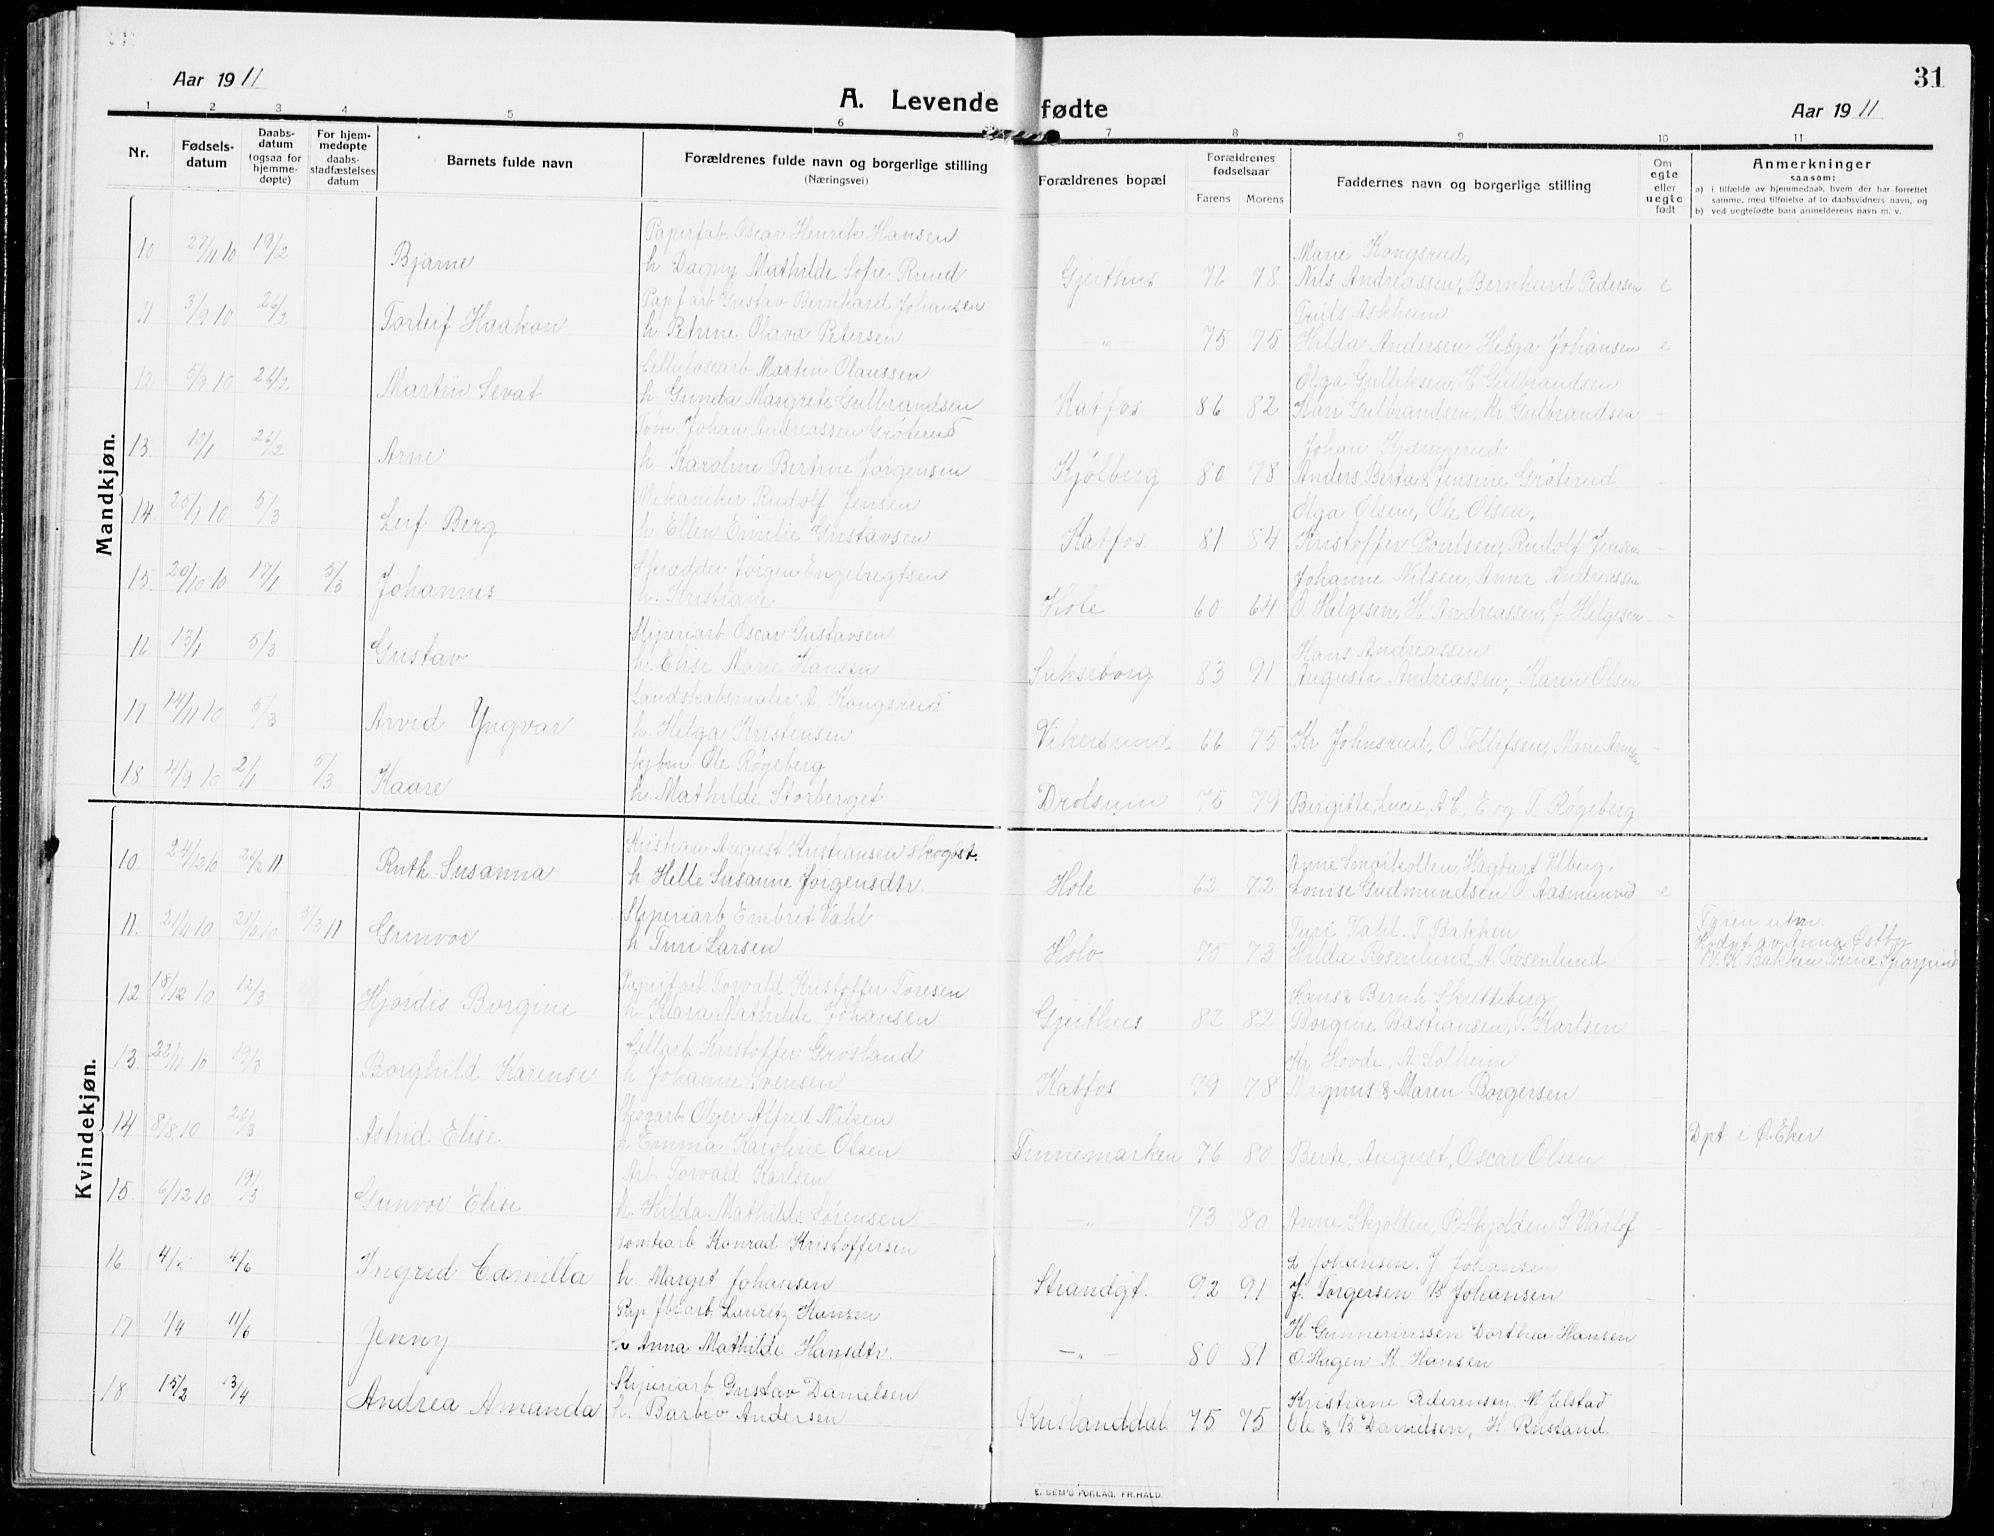 Aar 1911
A. Levende fødte
Aar 1911
31
1 2 3 4 5 6 7 8 9 10 11
Nr.
Fødsels-datum
Daabs-datum (ogsaa for hjemme-døpte)
For hjem-medøpte daabs-stadfæstelses datum
Barnets fulde navn
Forældrenes fulde navn og borgerlige stilling
(Næringsvei)
Forældrenes bopæl
Forældrenes fødselsaar
Farens Morens
Faddernes navn og borgerlige stilling
Om egte eller uegte født
Anmerkninger
saasom:
a) i tilfælde av hjemmedaab, hvem der har forrettet
samme, med tilføielse af to daabsvidners navn, og
b) ved uegtefødte barn anmelderens navn m. v.
Mandkjøn.
Paperfab. Oscar Henrik Hansen
Marie Kongsrud,
10 27/11 10 19/2 Bjarne h Dagny Mathilde Sofie Ruud Gjeithus 76 78 Nils Andreassen, Bernhard Pedersen e
Papfarb Gustav Bernhard Johansen
Truls Askheim
11 3/9 10 26/2 Torleif Haakon h Petrine Olava Petersen —"— 75 75 Hilda Andersen Helga Johansen e
Cellulosearb Martin Olaussen
Olga Gulliksen, H Gulbrandsen
12 5/9 10 26/2 Martin Sevat h Gunda Margrete Gulbrandsen Katfos 86 82 Kari Gulbrandsen, Kr Gulbrandsen -
Tøm Johan Andreassen Grøterud
Johan
13 10/1 26/2 Arne h Karoline Bertine Jørgensen Kjølberg 80 78 Anders, Berta & Jensine Grøterud -
Mekaniker Rudolf Jensen
Olga Olsen, Ole Olsen,
14 25/1 10 5/3 Leif Berg h Ellen Emilie Gustavsen Katfos 81 84 Kristoffer Poulsen, Rudolf Jensen -
Skrædder Jørgen Engebregtsen
Johanne Nilsen, Anna Andreassen
15 20/10 10 17/1 5/3 Johannes h. Kristiane Hole 60 64 O Helgesen, H Andreassen, J Helgesen -
Sliperiarb Oscar Gustavsen
Hans Andreassen
16 13/1 5/3 Gustav h. Elise Marie Hansen Sukseborg 83 91 Augusta Andreassen, Karen Olsen -
Landskabsmaler A. Kongsrud
17 14/11 10 5/3 Arvid Yngvar h. Helga Kristensen Vikersund 66 75 Kr Johnsrud, O Tollefsen, Marie -
Ole Røgeberg
18 4/9 10 2/1 5/3 Kaare h. Mathilde Storberget Drolsum 75 79 Birgitte, Lucie, A C, E og T. Røgeberg
Kvindekjøn.
Kristian August Kristiansen skogbst.
10 24/12 10 26/2 11 Ruth Susanna h Helle Susanne Jørgensdtr. Hole 62 72 Louise Gudmundsen O Aasmunrud e
Sliperiarb Embret Vahl
Turi Vahl. T Bakken
11. 21/11 10 21/11 10 5/3 11 Gunvor h Turi Larsen Holo 75 73 Hilda Rosenlund, A. Rosenlund
Hjdpt av Anna Østby
Papirfarb Torvald Kristoffer Toresen
Hans & Bernh Skretteberg
12 18/12 10 12/3 Hjørdis Borgine h Klara Mathilde Johansen Gjeithus 82 82 Borgine Bastiansen, T. Karlsen -
Cellarb Kristoffer Grøsland
Kr Hovde, A Solheim
13 22/11 10 19/3 Borghild Karense h Johanne Svensen Katfos 79 78 Magnus & Maren Borgersen -
Skogarb Olger Alfred Nilsen
14 8/8 10 26/3 Astrid Elise h Emma Karoline Olsen Finnemarken 76 80 Berte, August, Oscar Olsen
Dpt i Ø. Eker
Arb. Torvald Karlsen
15 6/12 10 19/3 Gunvor Elise h. Hilda Mathilde Sørensen —"— 73 80 Anne Skjolden, P Skjolden S Warlof -
Tomtearb Konrad Kristoffersen
L Johansen. J Johansen
16 4/6 Ingrid Camilla h. Margit Johansen Strandgt. 92 91 J. Torgersen B Johansen
Pap fbrarb. Lauritz Hansen
H. Gunneriussen Dorthea Hansen
17 1/4 11/6 Jenny h Anna Mathilde Hansdtr. —"— 80 81 O. Hagen K Hansen
Sliperiarb Gustav Danielsen
Kristiane Pedersen. M. Elstad
18 15/2 13/4 Andrea Amanda h. Barbro Andersen 75 75 Ole & B Danielsen, H Rustand.
E. SEM'S FORLAG, FR.HALD.